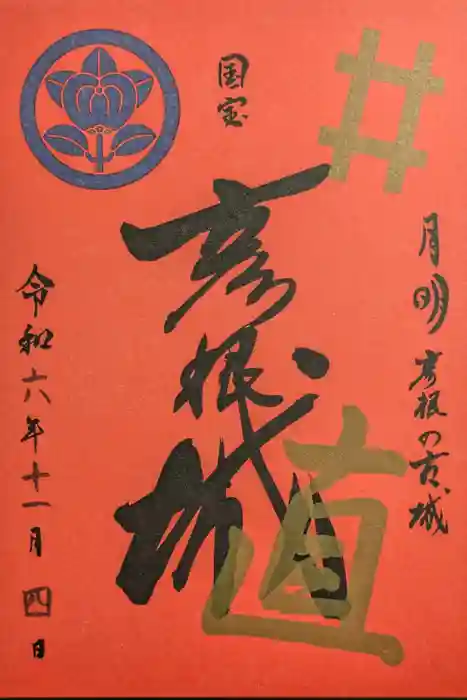 月明彦根の古城
井
直
国宝
彦根城
令和六年十一月四日